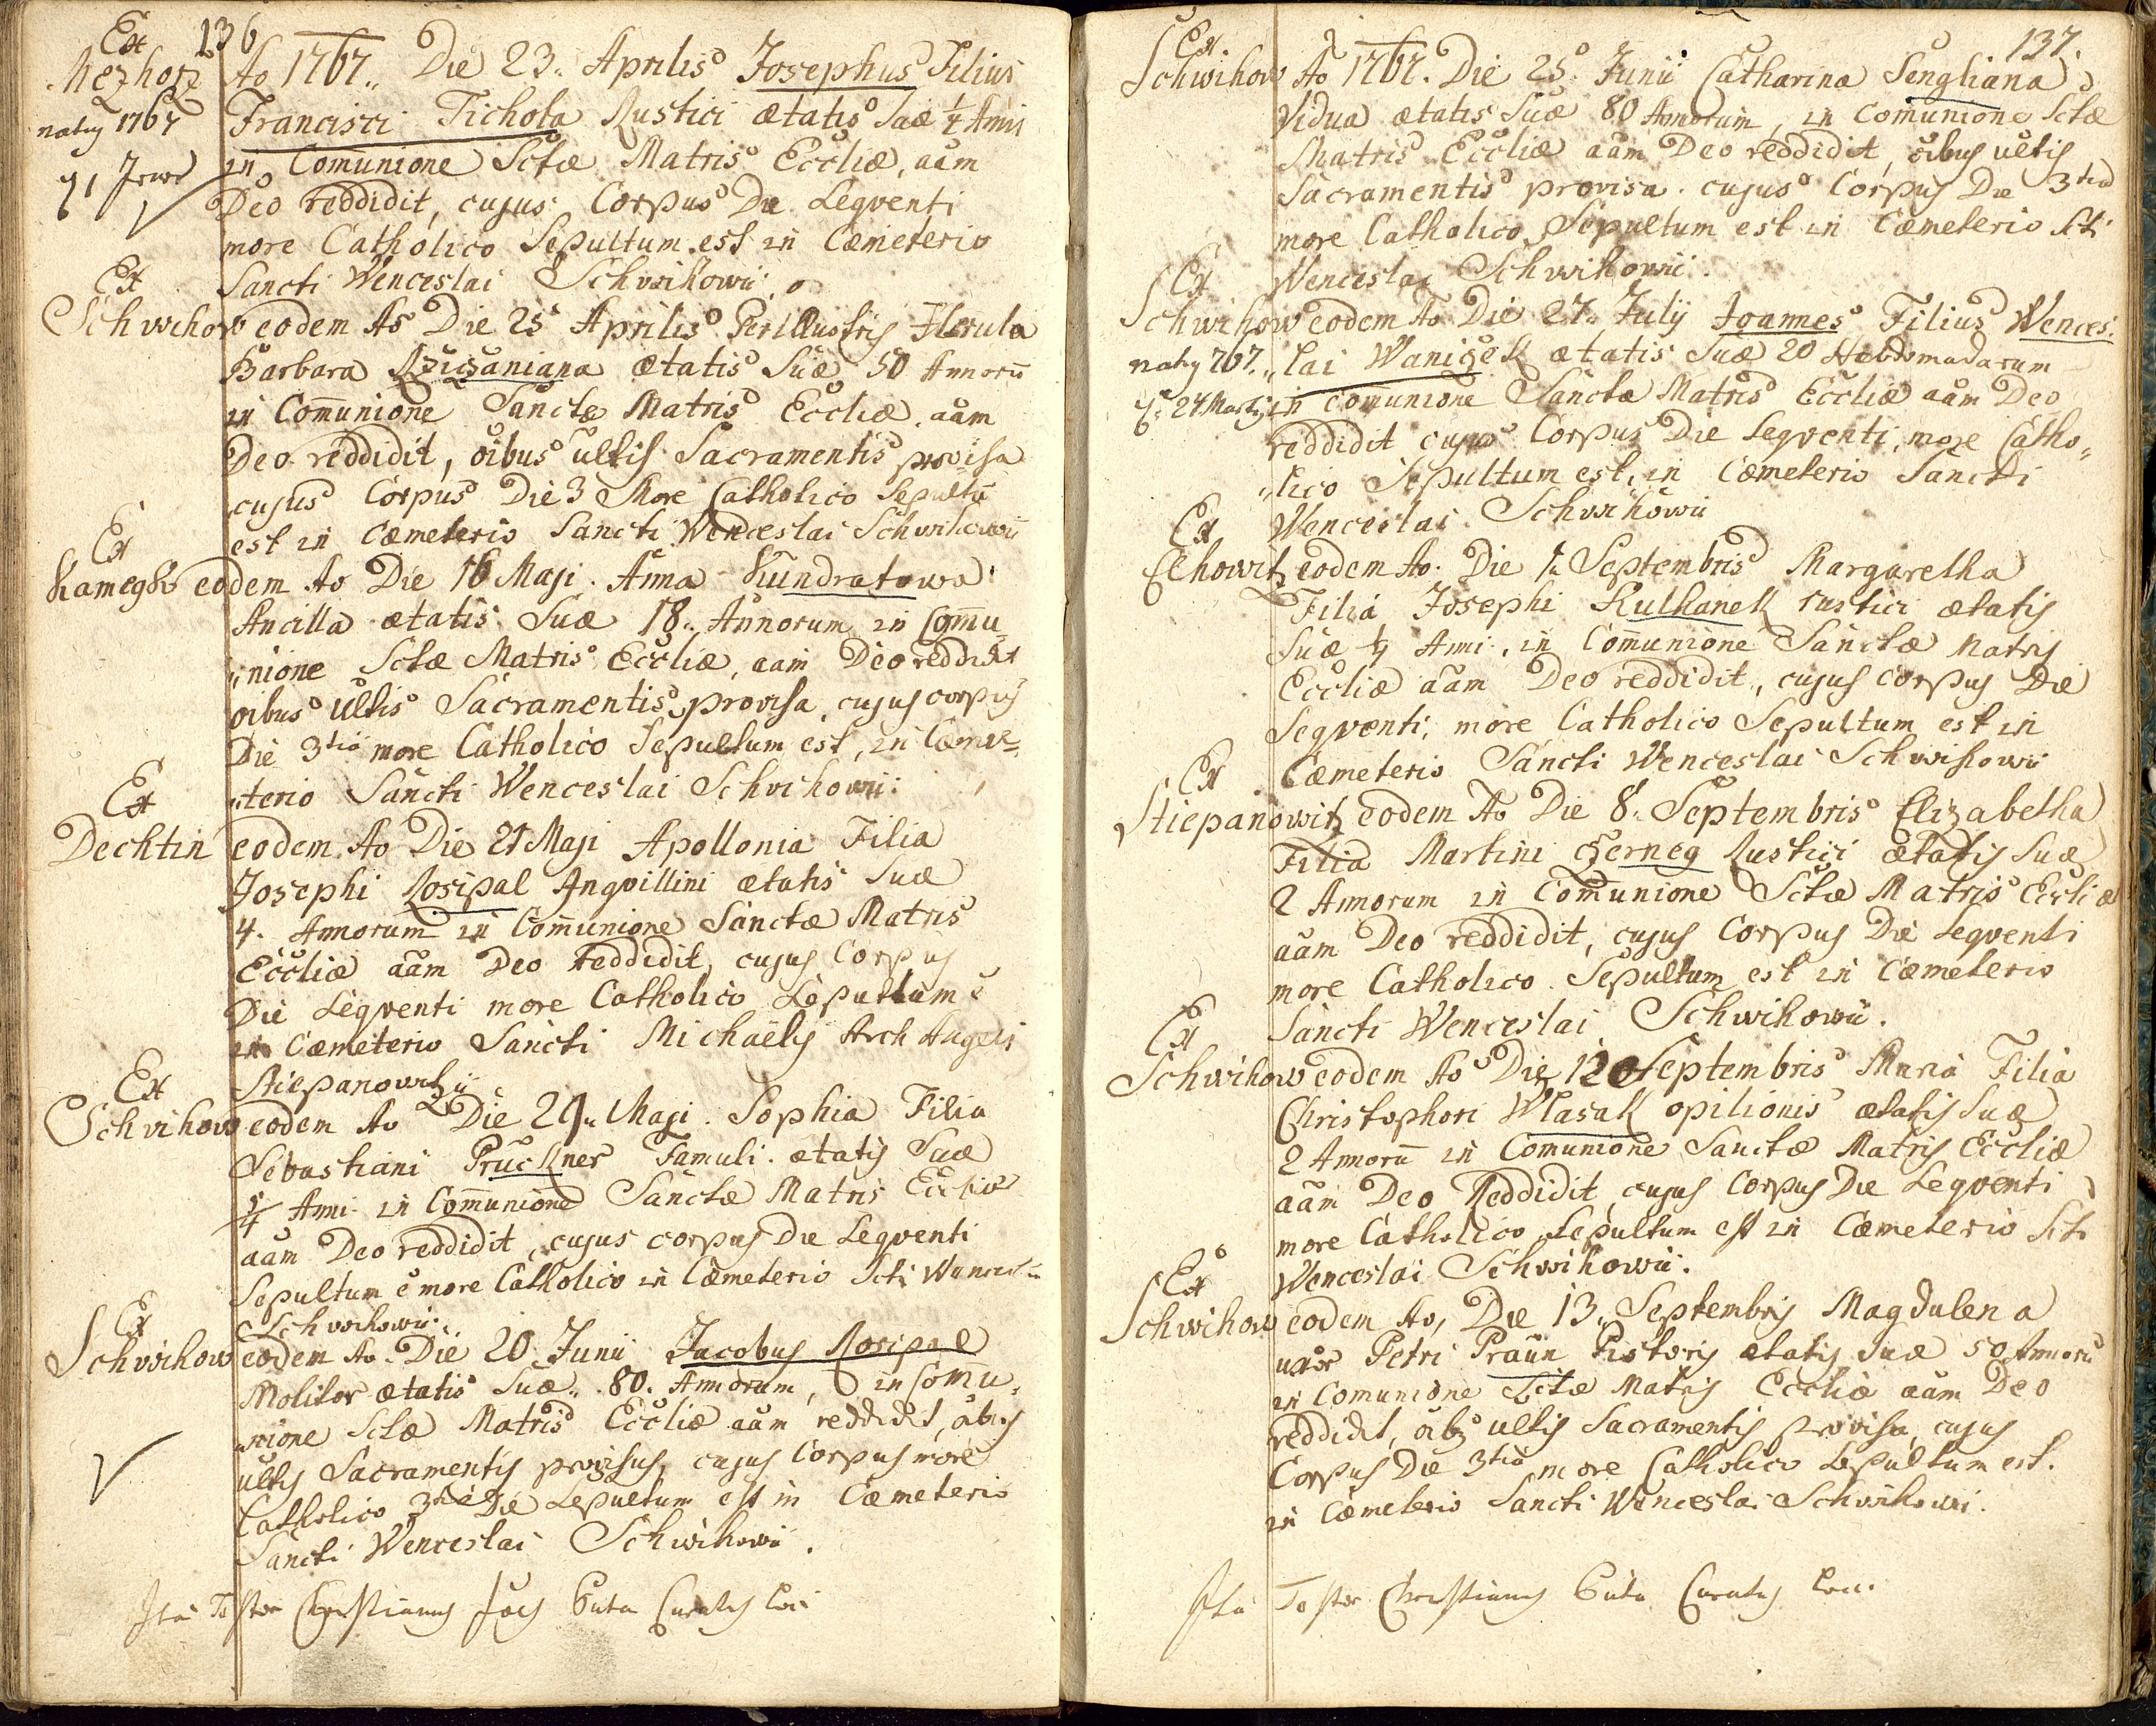 136
Ex
Mezhorz Ao 1767. Die 23. Aprilis Josephus Filius
natus 1767 Francisci Tichota Rustici ætatis Suæ 1/4 Anni
in Comunione Sctæ Matris Eccliæ, aam
Deo reddidit, cujus Corpus Die Seqventi
more Catholico Sepultum est in Cæmeterio
Ex Sancti Wenceslai Schwihowii
Schwihow eodem Ao Die 25 Aprilis Perillustris Herula
Barbara ætatis Suæ 50 Annorū
in Comunione Sanctæ Matris Eccliæ. aam
Deo reddidit, oibus ultis Sacramentis provisa
cujus Corpus Die 3 More Catholico Sepultū
est in Cæmeterio Sancti Wenceslai Schwihowii
Ex
eodem Ao Die 16 Maji. Anna Kundratowa
Ancilla ætatis Suæ 18. Annorum in Comu„
„nione Sctæ Matris Eccliæ, aam Deo reddidit
oibus ultis Sacramentis provisa, cujus corpus
Die 3tia more Catholico Sepultum est, in Cæme„
Ex „terio Sancti Wenceslai Schwihowii.
Dechtin eodem Ao Die 21 Maji Apollonia Filia
Josephi Rosipal Inqvillini ætatis Suæ
4. Annorum in Comunione Sanctæ Matris
Eccliæ aam Deo reddidit, cujus Corpus
Die Seqventi more Catholico Sepultum e
in Cæmeterio Sancti Michaëlis Arch Angeli
Ex Stiepanowitzii
Schwihow eodem Ao Die 29. Maji. Sophia Filia
Sebastiani Pruckner Famuli. ætatis Suæ
Anni in Comunione Sanctæ Matris Eccliæ
aam Deo reddidit, cujus corpus die Seqventi
Sepultum e more Catholico in Cæmeterio Scti Wences„
Ex Schwihowii.
Schwihow eodem Ao. Die 20. Junii Jacobus Rosipal
Molitor ætatis Suæ. 80. Annorum, in Comu„
„nione Sctæ Matris Eccliæ aam reddidit, oibus
ultis Sacramentis provisus, cujus Corpus more
Catholico 3tia Die Sepultum est in Cæmeterio
Sancti Wenceslai Schwihowii.
Ita Testor Christianus Joes Guta Curatus loci
137.
Ex.
Schwihow Ao 1767. Die 25. Junii Catharina Sengliana
Vidua ætatis Suæ 80 Annorum, in Comunione Sctæ
Matris Eccliæ aam Deo reddidit, oibus ultis
Sacramentis provisa. cujus Corpus Die 3tia
more Catholico Sepultum est in Cæmeterio Scti
Ex Wenceslai Schwihowii.
Schwihow eodem Ao Die 27. Julij Joannes Filius Wences„
natus 767. „lai Waniczek ætatis Suæ 20 Hebdomadarum
24 Martij in comunione Sanctæ Matris Eccliæ aam Deo
reddidit cujus Corpus Die Seqventi, more Catho„
„lico Sepultum est, in Cæmeterio Sancti
Ex Wenceslai Schwihowii
Elhowitz eodem Ao. Die 1. Septembris Margaretha
Filia Josephi Kulhanek rustici ætatis
Suæ Anni, in Comunione Sanctæ Matris
Eccliæ aam Deo reddidit, cujus corpus Die
Seqventi, more Catholico Sepultum est in
Ex Cæmeterio Sancti Wenceslai Schwihowii
Stiepanowitz eodem Ao Die 8. Septembris Elizabetha
Filia Martini Czerneg Rustici ætatis Suæ
2 Annorum in Comunione Sctæ Matris Eccliæ
aam Deo reddidit, cujus Corpus Die Seqventi
more Catholico Sepultum est in Cæmeterio
Ex Sancti Wenceslai Schwihowii.
Schwihow eodem Ao Die 12 Septembris Maria Filia
Christophori Wlasak opilionis ætatis Suæ
2 Annorū in Comunione Sanctæ Matris Eccliæ
aam Deo Reddidit, cujus Corpus Die Seqventi
more Catholico Sepultum est in Cæmeterio Scti
Ex Wenceslai Schwihowii.
Schwihow eodem Ao, Die 13. Septembris Magdalena
uxor Petri Praun Pistoris ætatis Suæ 50 Annorū
in Comunione Sctæ Matris Eccliæ aam Deo
reddidit, oibs ultis Sacramentis provisa, cujus
Corpus Die 3tia more Catholico Sepultum est.
in Cæmeterio Sancti Wenceslai Schwihowii.
Ita Testor Christianus Guta Curatus loci.